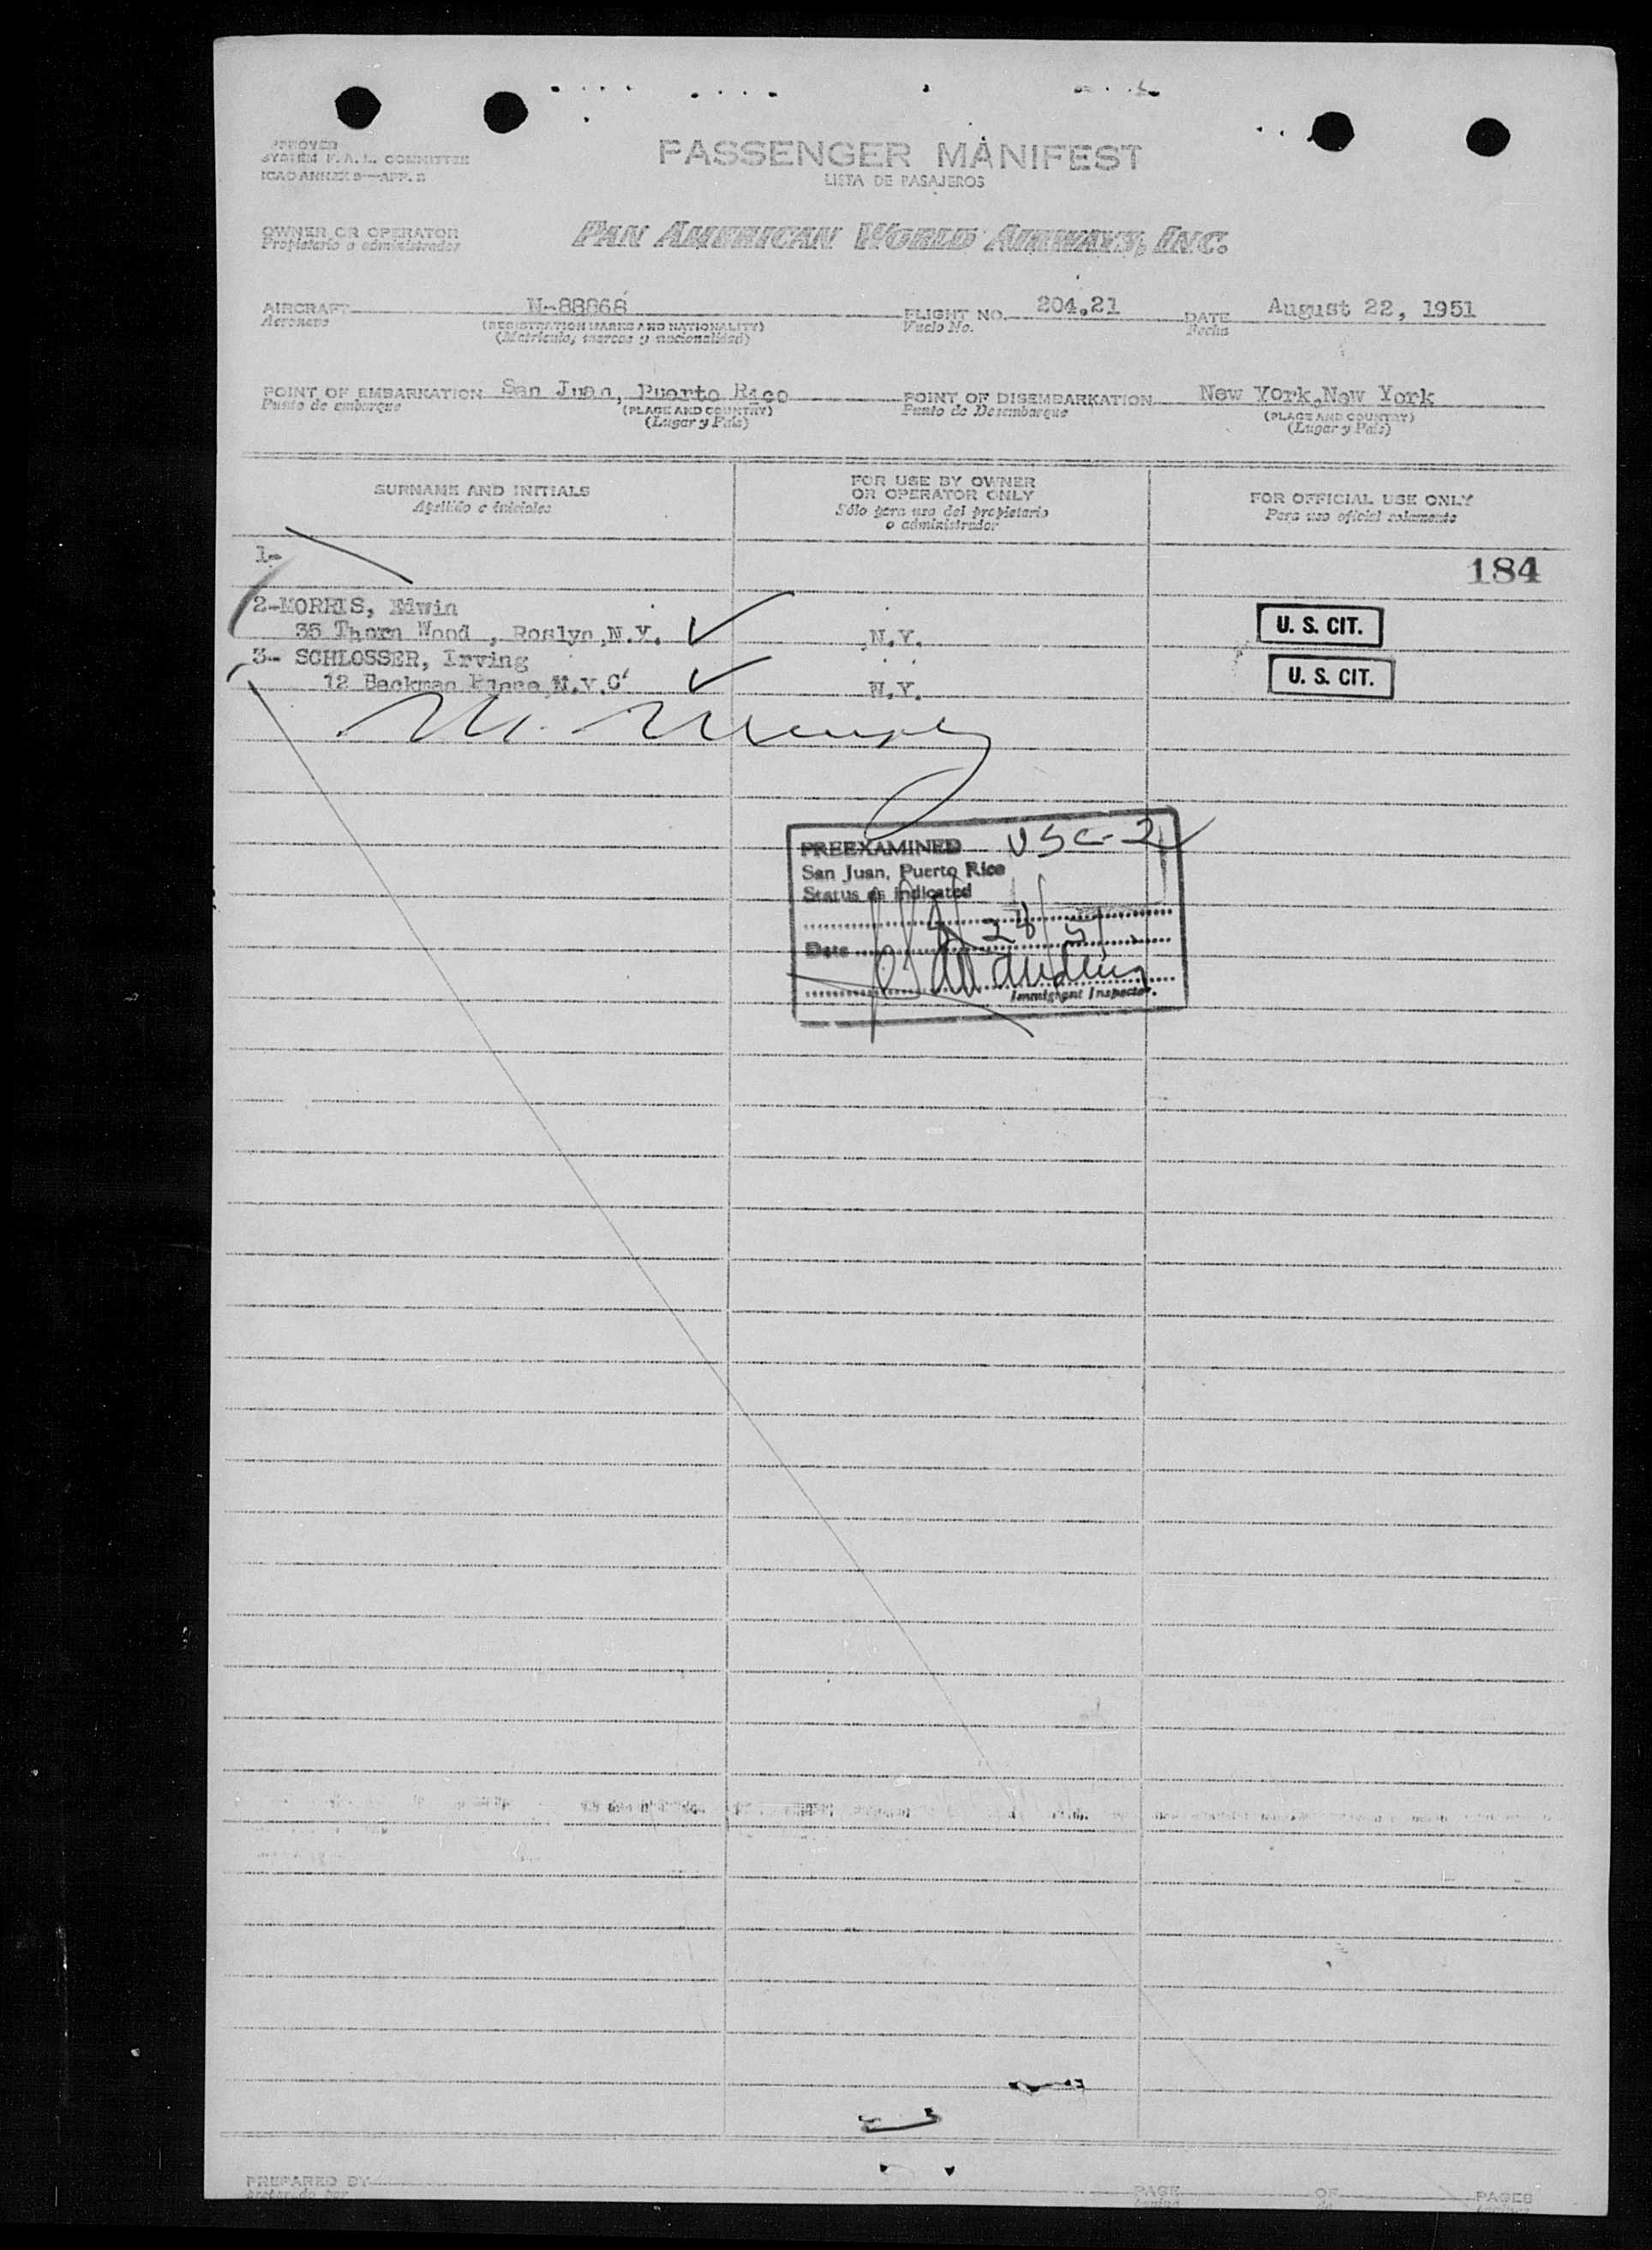 APPROVED
SYSTEM F. A. L. COMMITTEE
ICAO ANNEX 9—APP. B
PASSENGER MANIFEST
LISTA DE PASAJEROS
OWNER OR OPERATOR
Propietario o administrador
PAN AMERICAN WORLD AIRWAYS, INC.
AIRCRAFT N-88868 FLIGHT NO. 204.21 DATE August 22, 1951
Aeronave (REGISTRATION MARKS AND NATIONALITY) Vuelo No. Fecha
(Matrícula, marcas y nacionalidad)
POINT OF EMBARKATION San Juan, Puerto Rico POINT OF DISEMBARKATION New York,New York
Punto de embarque (PLACE AND COUNTRY) Punto de Desembarque (PLACE AND COUNTRY)
(Lugar y País) (Lugar y País)
SURNAME AND INITIALS
Apellido e iniciales
FOR USE BY OWNER
OR OPERATOR ONLY
Sólo para uso del propietario
o administrador
FOR OFFICIAL USE ONLY
Para uso oficial solamente
1-
184
2-MORRIS, Edwin
35 Thorn Wood , Roslyn,N.Y. N.Y. U. S. CIT.
3- SCHLOSSER, Irving
12 Beekman Place,N.Y.C N.Y. U. S. CIT.
PREEXAMINED USC-2
San Juan, Puerto Rico
Status as indicated
Date
Immigrant Inspector.
PREPARED BY PAGE OF PAGES